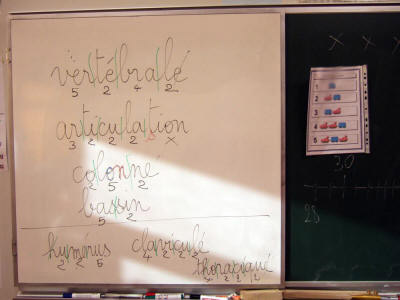 vertébralé
5 2 4 2
articulation
3 2 2 2 x
colonné
2 5 2
bassin
5 2
humérus claviculé
2 2 5 4 2 2 2
thoraciqué
4 2 2 2
x x x
1
2
3
4
5
30
28